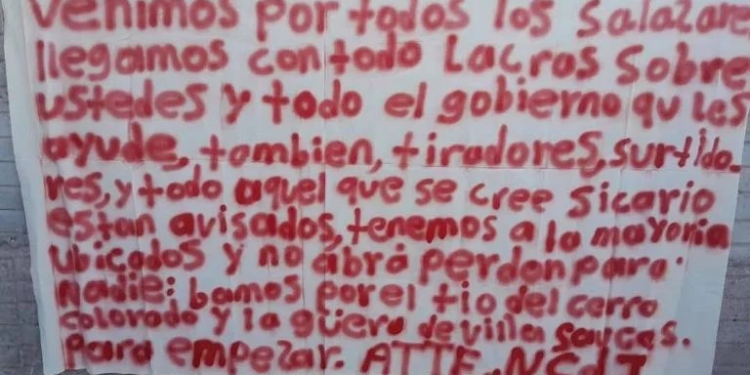 venimos por todos los Salazare
llegamos con todo Lacras sobre
ustedes y todo el gobierno qu les
ayude, tambien, tiradores, surtido
res, y todo aquel que se cree Sicario
estan avisados, tenemos a la mayoria
ubicados y no abrá perdon para
Nadie: bamos por el tio del cerro
colorado y la güera de villa sauces.
Para empezar. ATTE. NCdJ